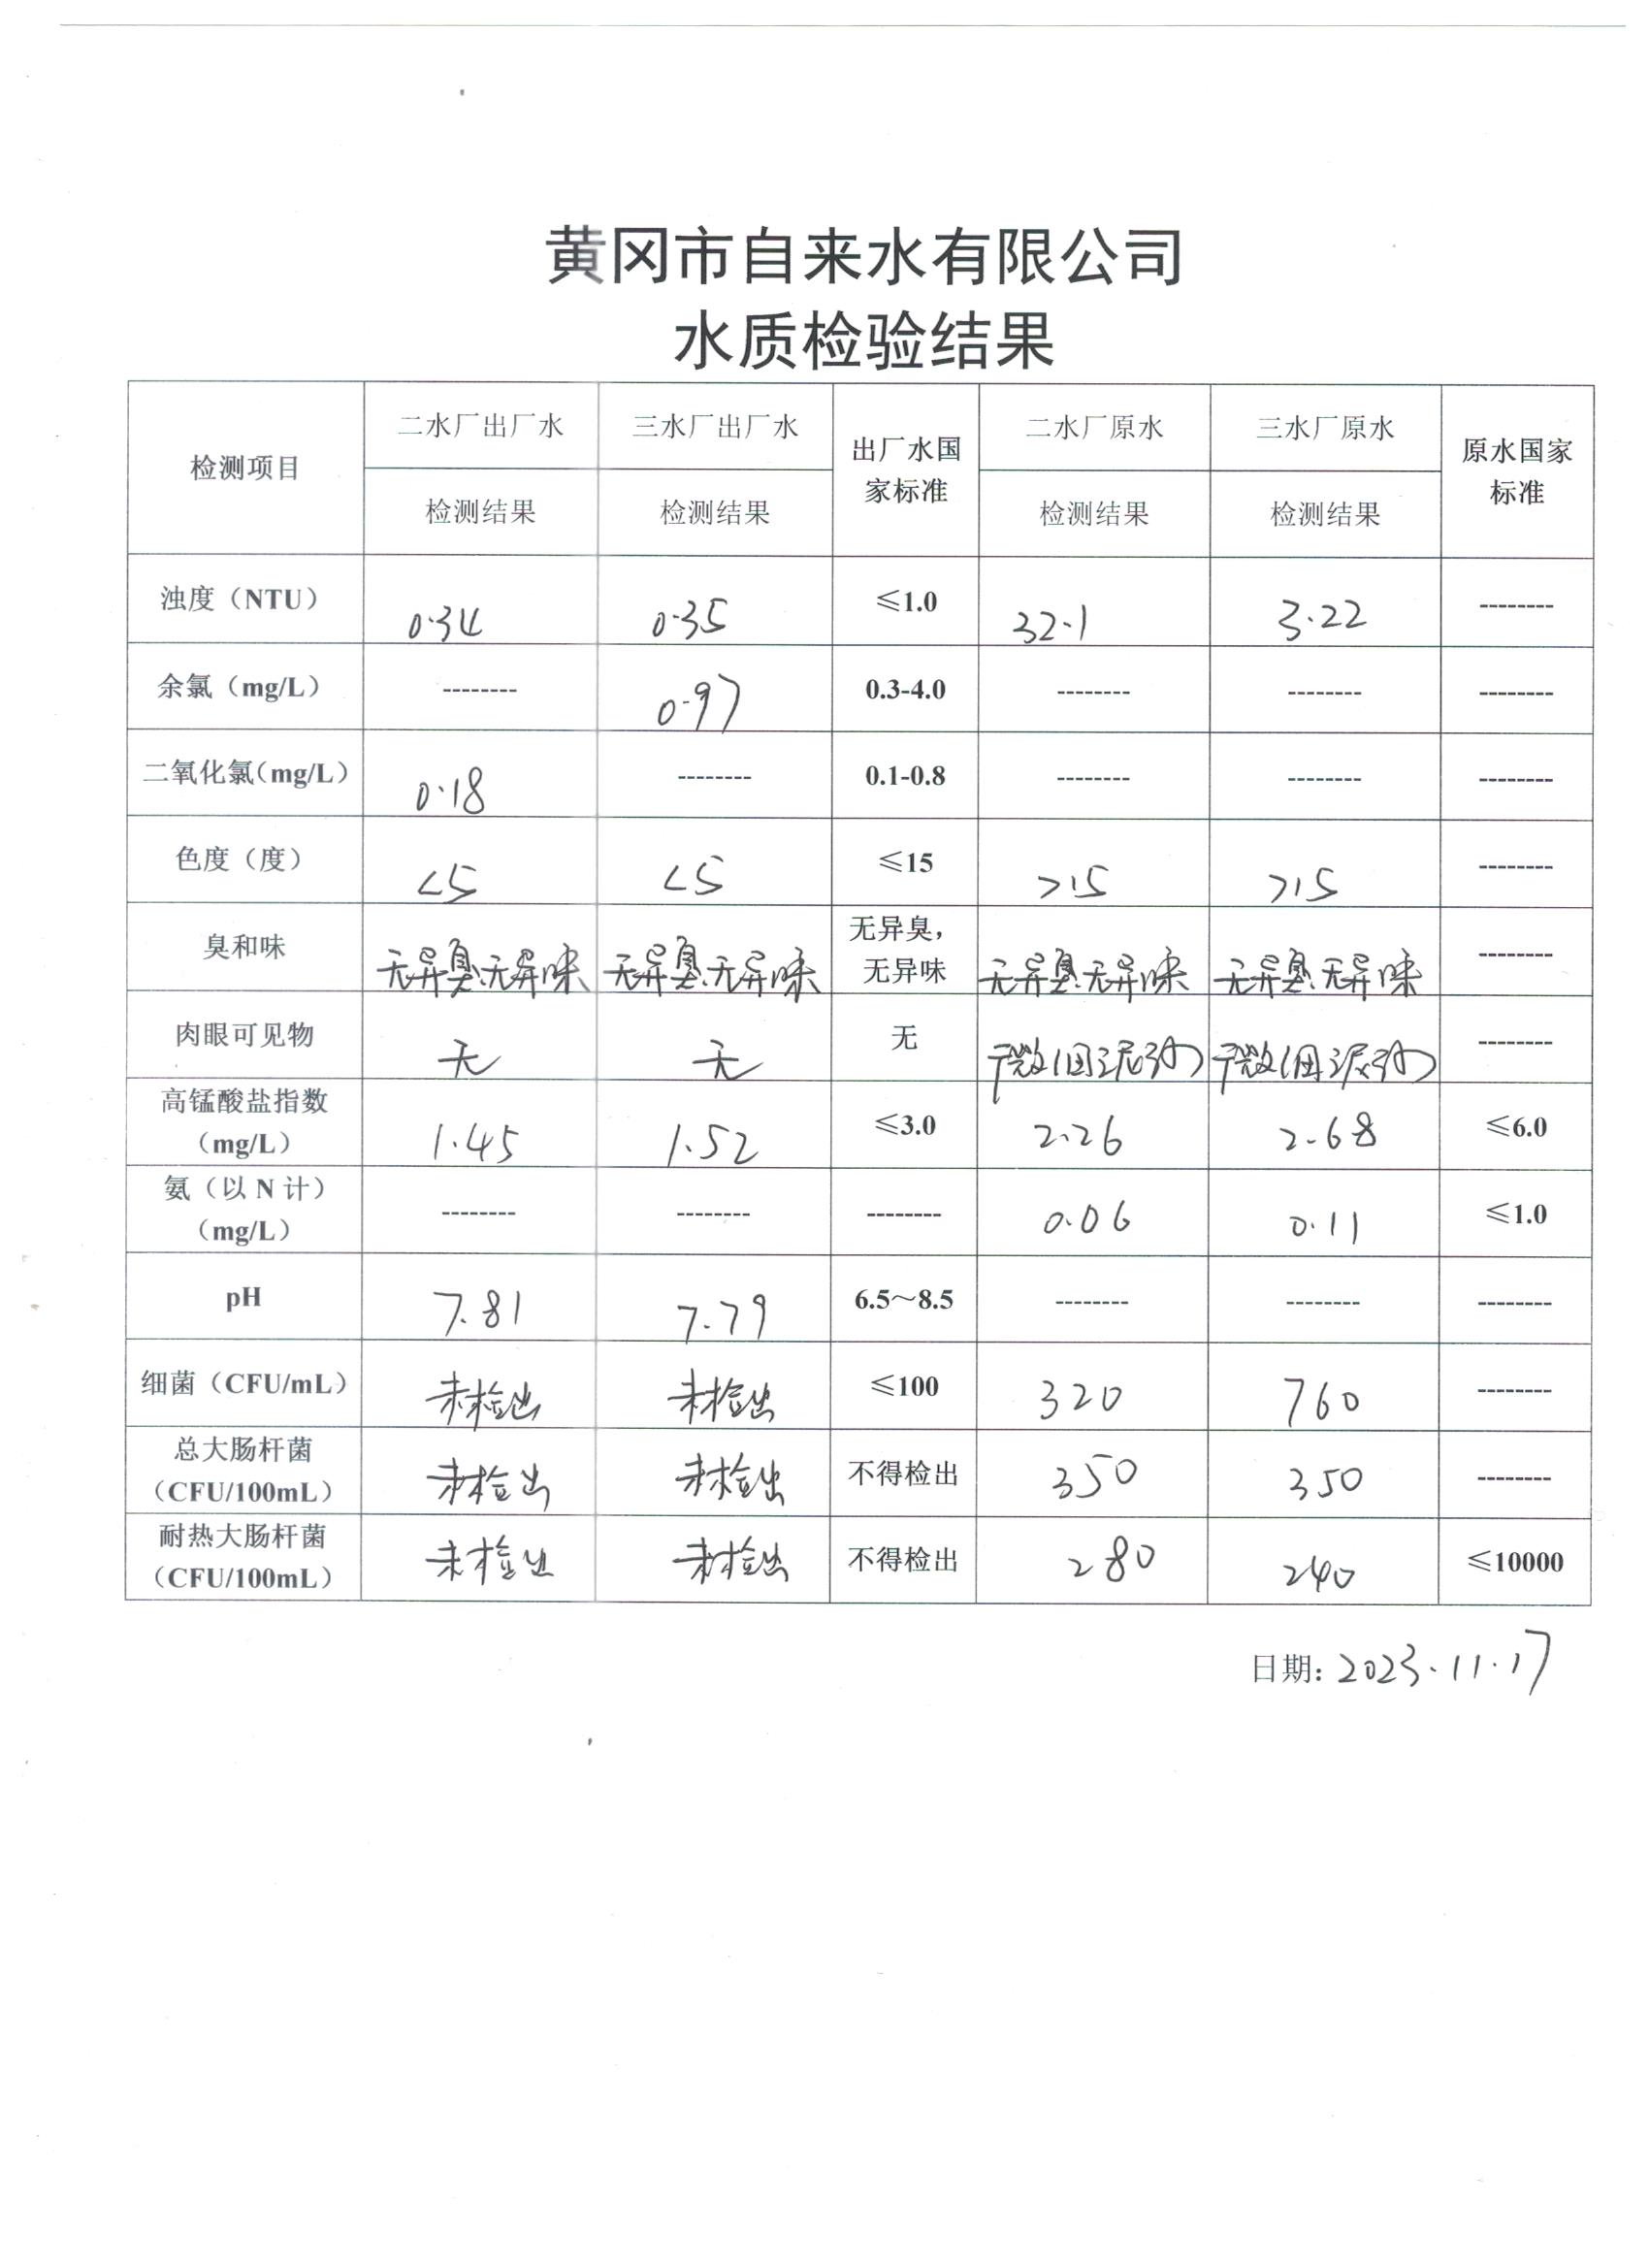 黄冈市自来水有限公司
水质检验结果
检测项目 二水厂出厂水 三水厂出厂水 出厂水国家标准 二水厂原水 三水厂原水 原水国家标准
检测结果 检测结果 检测结果 检测结果
浊度（NTU） 0.34 0.35 ≤1.0 32.1 3.22 --------
余氯（mg/L） -------- 0.97 0.3-4.0 -------- -------- --------
二氧化氯（mg/L） 0.18 -------- 0.1-0.8 -------- -------- --------
色度（度） <5 <5 ≤15 >15 >15 --------
臭和味 无异臭、无异味 无异臭、无异味 无异臭，无异味 无异臭、无异味 无异臭、无异味 --------
肉眼可见物 无 无 无 微细泥沙 微细泥沙 --------
高锰酸盐指数（mg/L） 1.45 1.52 ≤3.0 2.26 2.68 ≤6.0
氨（以 N 计）（mg/L） -------- -------- -------- 0.06 0.11 ≤1.0
pH 7.81 7.79 6.5～8.5 -------- -------- --------
细菌（CFU/mL） 未检出 未检出 ≤100 320 760 --------
总大肠杆菌（CFU/100mL） 未检出 未检出 不得检出 350 350 --------
耐热大肠杆菌（CFU/100mL） 未检出 未检出 不得检出 280 240 ≤10000
日期：2023.11.17